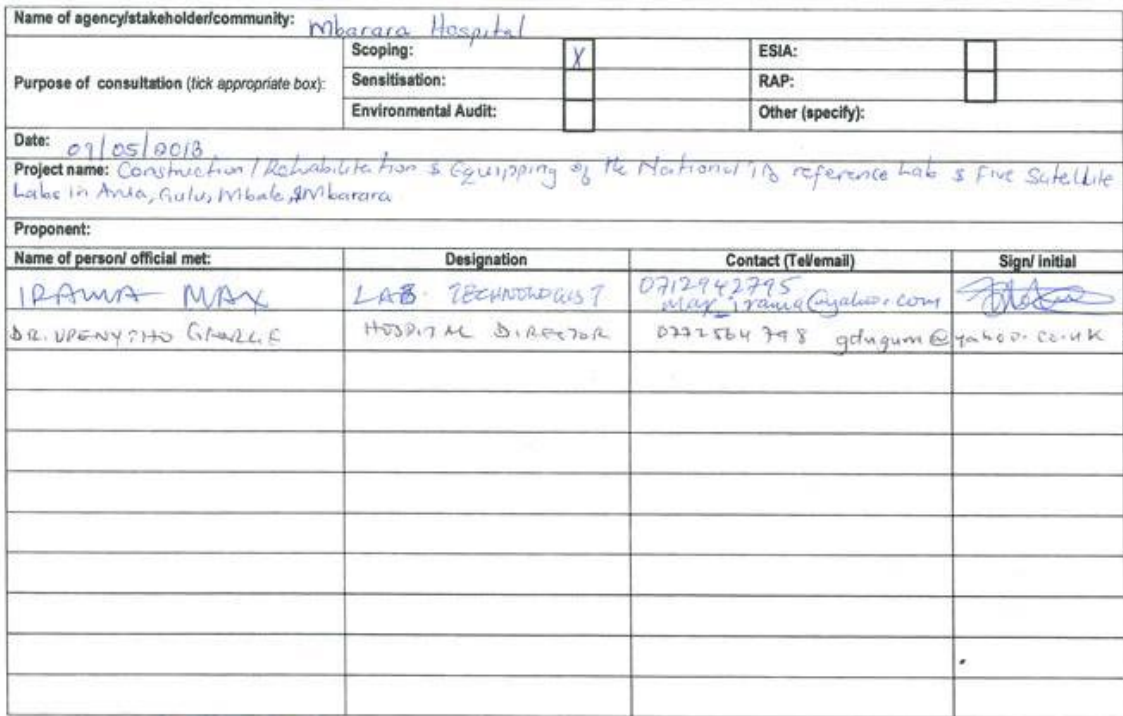 Name of agency/stakeholder/community: Mbarara Hospital
Purpose of consultation (tick appropriate box): Scoping: X ESIA:
Sensitisation: RAP:
Environmental Audit: Other (specify):
Date: 09/05/2013
Project name: Construction / Rehabilitation & Equipping of the National TB reference Lab & Five Satellite
Labs in Arua, Gulu, Mbale, & Mbarara
Proponent:
Name of person/ official met: Designation Contact (Tel/email) Sign/ initial
IRAMA MAX LAB. TECHNOLOGIST 0712942795
max_irama@yahoo.com
DR. UPENYTHO GEORGE HOSPITAL DIRECTOR 0772564798 gdugum@yahoo.co.uk